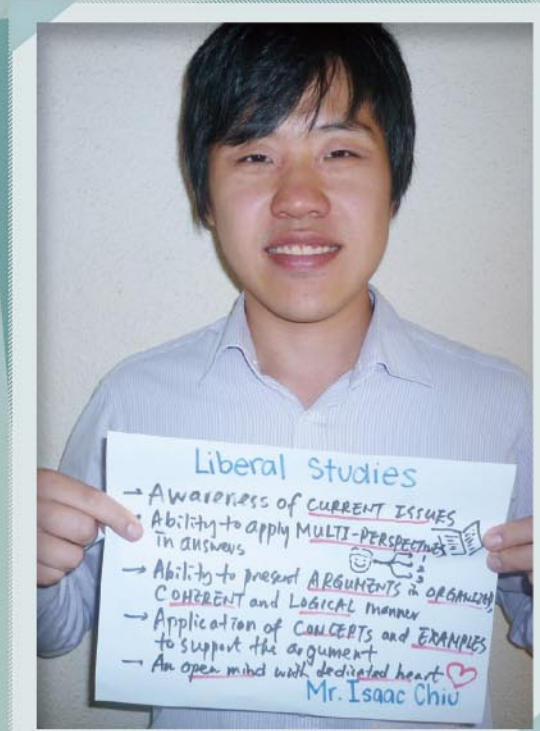 Liberal Studies
→ Awareness of CURRENT ISSUES
→ Ability to apply MULTI-PERSPECTIVES
in answers
1
2
3
→ Ability to present ARGUMENTS in ORGANIZED,
COHERENT and LOGICAL manner
→ Application of CONCEPTS and EXAMPLES
to support the argument
→ An open mind with dedicated heart
Mr. Isaac Chiu